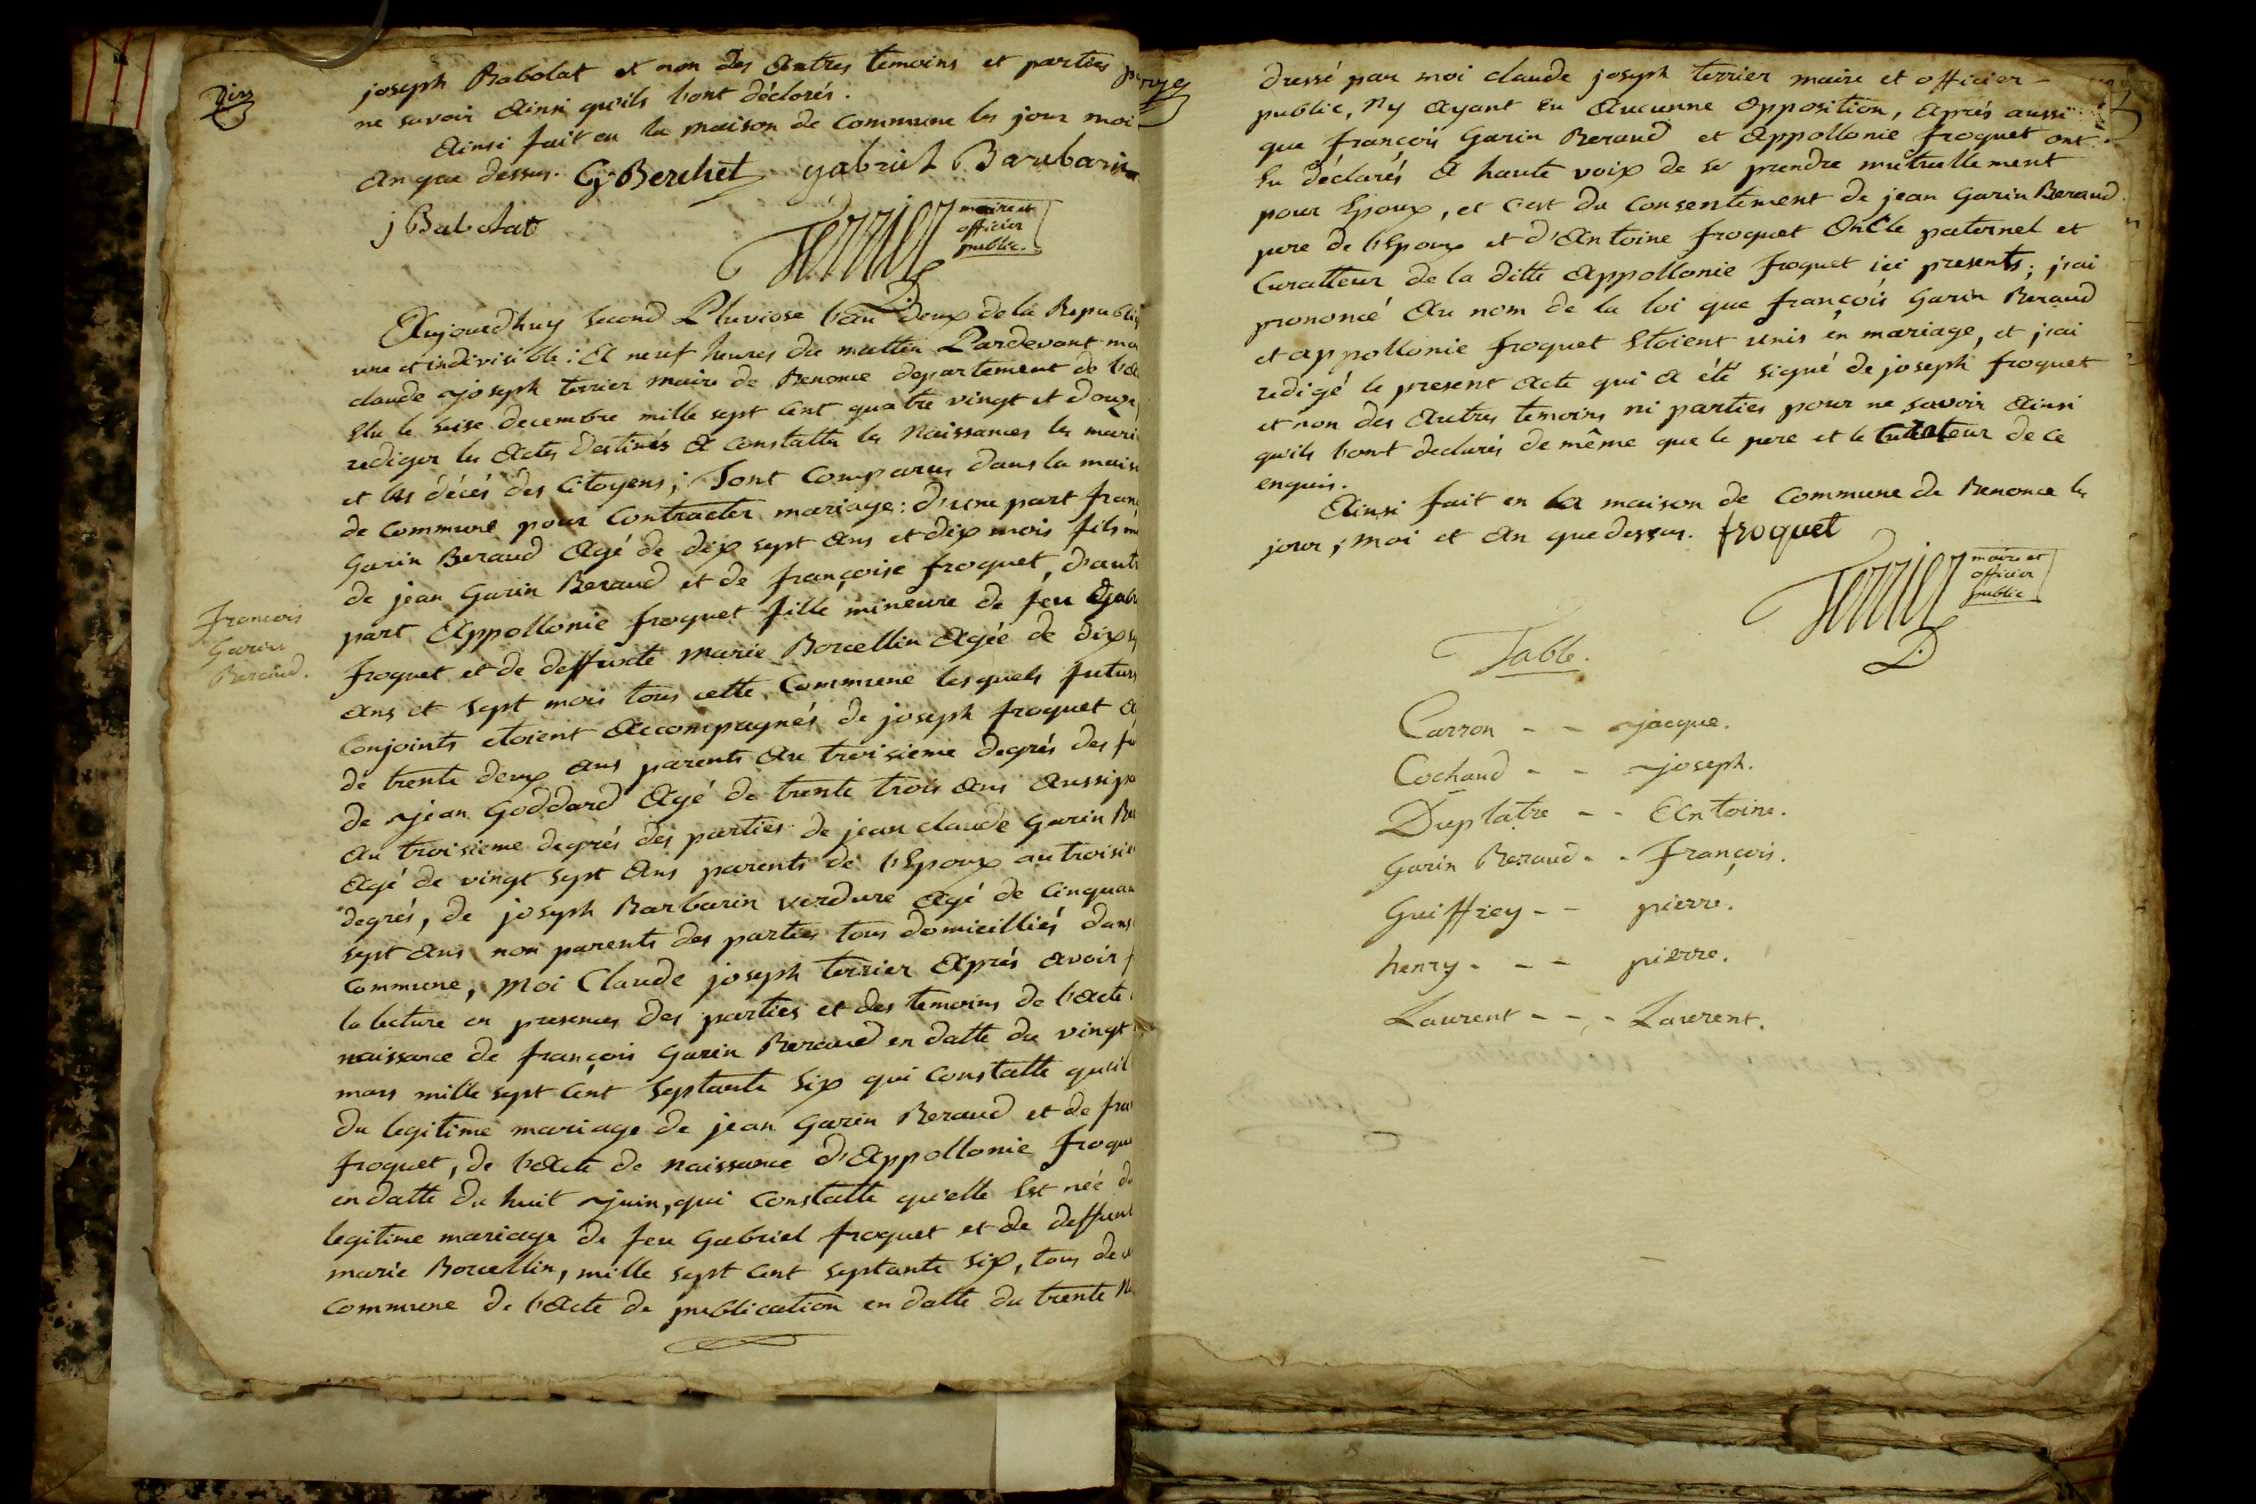 joseph Babolat et non des Autres temoins et parties
ne savoir Ainsi qu'ils l'ont déclarés.
Ainsi fait en la maison de Commune les jour moi
An que dessus. G Berchet gabriel Barubarin
j Babolat
Terrier maire et
officier
public.
Aujourdhuy second Pluviose l'an Deux de la Republiq
une et indivisible: A neuf heures du mattin Pardevant mo
claude joseph terrier maire de Benonce departement de l'a
Elu le seise decembre mille sept Cent quatre vingt et Douze
rediger les Actes Destinés A constatter les Naissances les mari
et les décés des Citoyens; Sont Comparus dans la mais
de Commune pour Contracter mariage: d'une part franç
Garin Beraud Agé de dix sept Ans et dix mois fils m
de jean Garin Beraud et de françoise froquet, d'autr
part Appollonie froquet fille mineure de feu Gab
froquet et de deffunte marie Borcellin Agée de dix s
Ans et sept mois tous cette Commune lesquels futurs
Conjoints etoient Accompagnés de joseph froquet A
de trente deux ans parents Au troisieme degrés des fu
de jean Goddard Agé de trente trois Ans Aussi pa
Au troisieme degrés des parties de jean claude Garin Be
Agé de vingt sept Ans parents de l'Epoux au troisie
degrés, de joseph Barbarin verdure Agé de Cinquan
sept Ans non parents des parties tous domicilliés dans
Commune, Moi Claude joseph terrier Aprés avoir f
la lecture en presences des parties et des temoins de l'acte
naissance de françois Garin Beraud en datte du vingt
mars mille sept Cent Septante Six qui Constatte qu'il
du legitime mariage de jean Garin Beraud et de fra
froquet, de l'Acte de naissance d'Appollonie froqu
en datte du huit juin, qui Constatte qu'elle Est née du
legitime mariage de feu Gabriel froquet et de deffunt
marie Borcellin, mille sept Cent septante Six, tous de
Commune de l'Acte de publication en datte du trente N
François
Garin
Beraud.
dressé par moi claude joseph terrier maire et officier
public, N'y Ayant Eu Aucunne Opposition, Aprés aussi
que françois Garin Beraud et Appollonie froquet ont
Eu déclarés A haute voix de se prendre mutuellement
pour Epoux, et c'est du Consentement de jean Garin Beraud
pere de l'Epoux et d'Antoine froquet Oncle paternel et
Curatteur de la ditte Appollonie froquet ici presents; j'ai
prononcé Au nom de la loi que françois Garin Beraud
et appollonie froquet Etoient unis en mariage, et j'ai
redigé le present Acte qui A été signé de joseph froquet
et non des Autres temoins ni parties pour ne savoir Ainsi
qu'ils l'ont declarés de même que le pere et le Curateur de ce
enquis.
Ainsi fait en la maison de Commune de Benonce les
jour, moi et An que dessus. froquet
Terrier maire et
officier
public
Table.
Carron - - jacque.
Cochand - - joseph.
Duplatre - - Antoine.
Garin Beraud - - François.
Guiffrey - - pierre.
henry - - - pierre.
Laurent - - - Laurent.